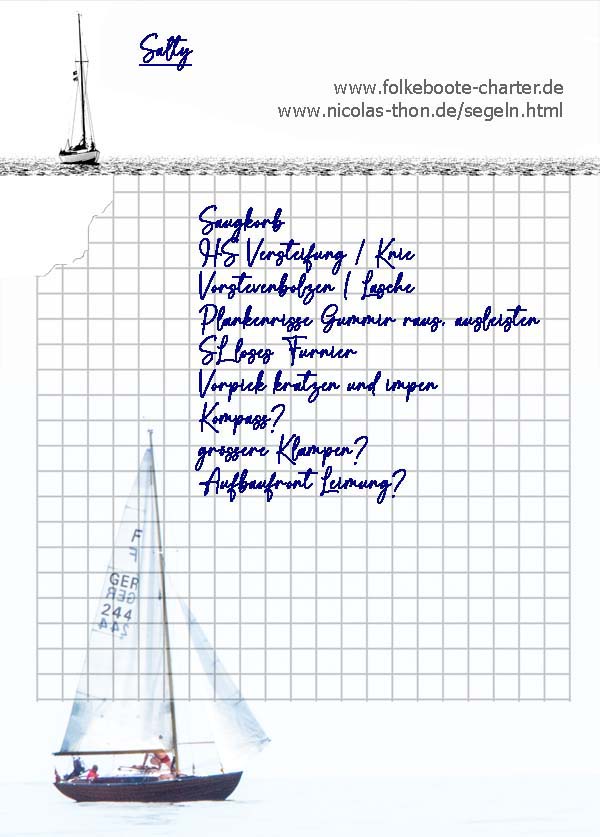 Salty
www.folkeboote-charter.de
www.nicolas-thon.de/segeln.html
Saugkorb
HS Versteifung / Knie
Vorstevenbolzen / Lasche
Plankenrisse Gummir raus, ausleisten
SL loses Furnier
Vorpiek kratzen und impen
Kompass?
grössere Klampen?
Aufbaufront Leimung?
F
F
GER
GER
244
244